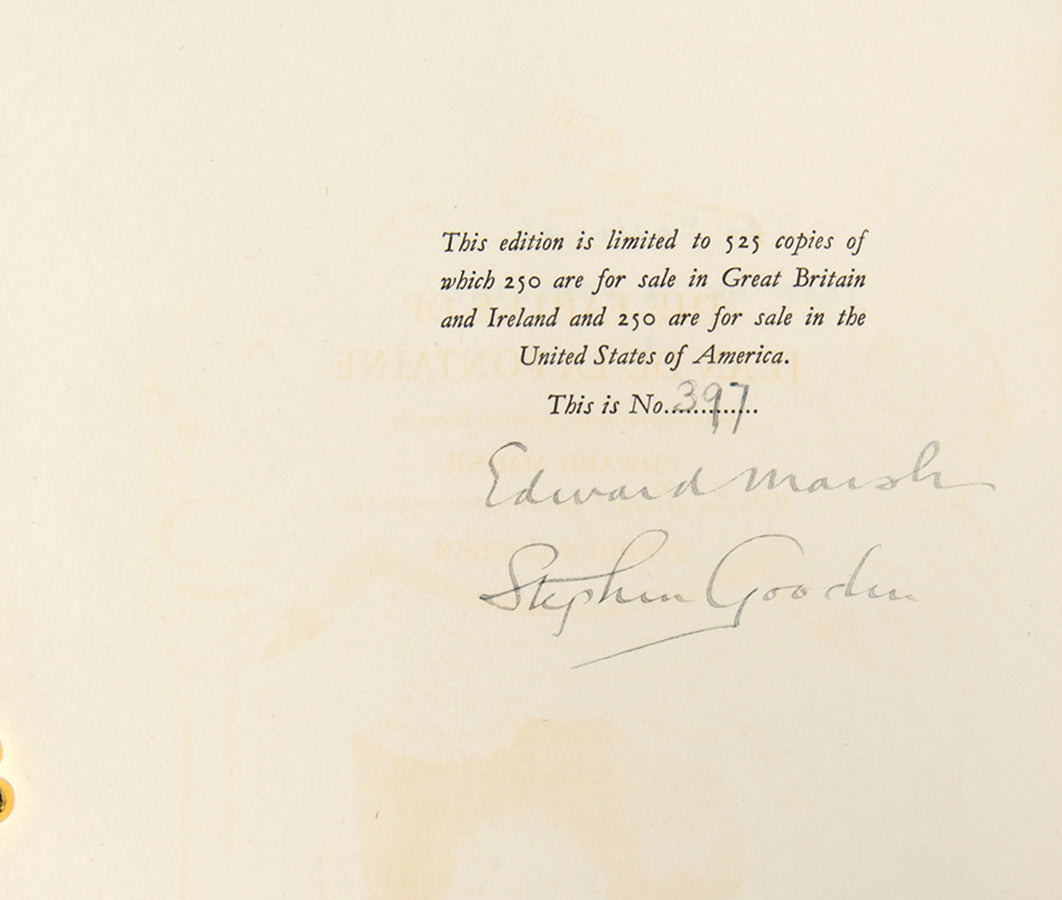 This edition is limited to 525 copies of
which 250 are for sale in Great Britain
and Ireland and 250 are for sale in the
United States of America.
This is No.397.............
Edward Marsh
Stephen Gooden